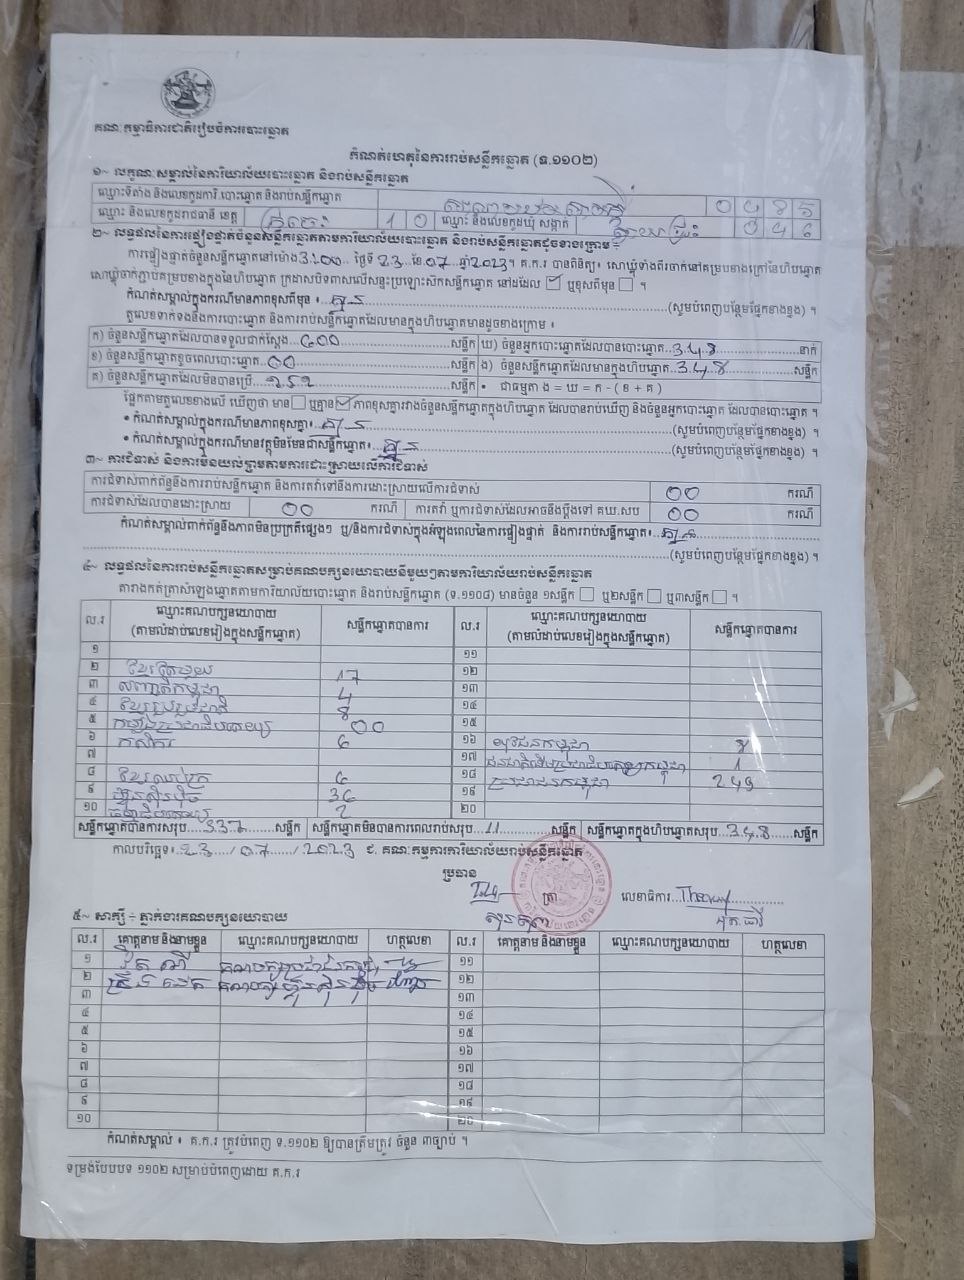 គណៈកម្មាធិការជាតិរៀបចំការបោះឆ្នោត
កំណត់ហេតុនៃការរាប់សន្លឹកឆ្នោត (ទ.១១០២)
១~ លក្ខណៈសម្គាល់នៃការិយាល័យបោះឆ្នោត និងរាប់សន្លឹកឆ្នោត
ឈ្មោះទីតាំង និងលេខកូដការិ.បោះឆ្នោត និងរាប់សន្លឹកឆ្នោត
ឈ្មោះ និងលេខកូដរាជធានី ខេត្ត ក្រចេះ 1 0 ឈ្មោះ និងលេខកូដឃុំ សង្កាត់
២~ លទ្ធផលនៃការផ្ទៀងផ្ទាត់ចំនួនសន្លឹកឆ្នោតតាមការិយាល័យបោះឆ្នោត និងរាប់សន្លឹកឆ្នោតដូចខាងក្រោម ÷
ការផ្ទៀងផ្ទាត់ចំនួនសន្លឹកឆ្នោតនៅម៉ោង 3:00 ថ្ងៃទី 23 ខែ 07 ឆ្នាំ 2023។ គ.ក.រ បានពិនិត្យ៖ សោប្លុំទាំងពីរចាក់នៅគម្របខាងក្រៅនៃហិបឆ្នោត
សោប្លុំចាក់ភ្ជាប់គម្របខាងក្នុងនៃហិបឆ្នោត ក្រដាសបិទពាសលើសន្ទះប្រឡោះស៊កសន្លឹកឆ្នោត នៅដដែល ☑ ឬខុសពីមុន ☐ ។
កំណត់សម្គាល់ក្នុងករណីមានភាពខុសពីមុន ៖ គ្មាន (សូមបំពេញបន្ថែមផ្នែកខាងខ្នង) ។
តួលេខទាក់ទងនឹងការបោះឆ្នោត និងការរាប់សន្លឹកឆ្នោតដែលមានក្នុងហិបឆ្នោតមានដូចខាងក្រោម ៖
ក) ចំនួនសន្លឹកឆ្នោតដែលបានទទួលជាក់ស្តែង 500 សន្លឹក ឃ) ចំនួនអ្នកបោះឆ្នោតដែលបានបោះឆ្នោត 348 នាក់
ខ) ចំនួនសន្លឹកឆ្នោតខូចពេលបោះឆ្នោត 00 សន្លឹក ង) ចំនួនសន្លឹកឆ្នោតដែលមានក្នុងហិបឆ្នោត 348 សន្លឹក
គ) ចំនួនសន្លឹកឆ្នោតដែលមិនបានប្រើ 152 សន្លឹក • ជាធម្មតា ង = ឃ = ក - ( ខ + គ )
ផ្អែកតាមតួលេខខាងលើ ឃើញថា មាន ☐ ឬគ្មាន ☑ ភាពខុសគ្នារវាងចំនួនសន្លឹកឆ្នោតក្នុងហិបឆ្នោត ដែលបានរាប់ឃើញ និងចំនួនអ្នកបោះឆ្នោត ដែលបានបោះឆ្នោត ។
• កំណត់សម្គាល់ក្នុងករណីមានភាពខុសគ្នា៖ គ្មាន (សូមបំពេញបន្ថែមផ្នែកខាងខ្នង) ។
• កំណត់សម្គាល់ក្នុងករណីមានវត្ថុមិនមែនជាសន្លឹកឆ្នោត៖ គ្មាន (សូមបំពេញបន្ថែមផ្នែកខាងខ្នង) ។
៣~ ការជំទាស់ និងការមិនយល់ព្រមតាមការដោះស្រាយលើការជំទាស់
ការជំទាស់ពាក់ព័ន្ធនឹងការរាប់សន្លឹកឆ្នោត និងការតវ៉ាទៅនឹងការដោះស្រាយលើការជំទាស់ 00 ករណី
ការជំទាស់ដែលបានដោះស្រាយ 00 ករណី ការតវ៉ា ឬការជំទាស់ដែលអាចនឹងប្តឹងទៅ គឃ.សប 00 ករណី
កំណត់សម្គាល់ពាក់ព័ន្ធនឹងភាពមិនប្រក្រតីផ្សេងៗ ឬ/និងការជំទាស់ក្នុងអំឡុងពេលនៃការផ្ទៀងផ្ទាត់ និងការរាប់សន្លឹកឆ្នោត៖ គ្មាន
(សូមបំពេញបន្ថែមផ្នែកខាងខ្នង) ។
៤~ លទ្ធផលនៃការរាប់សន្លឹកឆ្នោតសម្រាប់គណបក្សនយោបាយនីមួយៗតាមការិយាល័យរាប់សន្លឹកឆ្នោត
តារាងកត់ត្រាសំឡេងឆ្នោតតាមការិយាល័យបោះឆ្នោត និងរាប់សន្លឹកឆ្នោត (ទ.១១០៨) មានចំនួន ១សន្លឹក ☐ ឬ២សន្លឹក ☐ ឬ៣សន្លឹក ☐ ។
ល.រ ឈ្មោះគណបក្សនយោបាយ (តាមលំដាប់លេខរៀងក្នុងសន្លឹកឆ្នោត) សន្លឹកឆ្នោតបានការ ល.រ ឈ្មោះគណបក្សនយោបាយ (តាមលំដាប់លេខរៀងក្នុងសន្លឹកឆ្នោត) សន្លឹកឆ្នោតបានការ
១ ១១
២ ខ្មែរតែមួយ 17 ១២
៣ សញ្ជាតិកម្ពុជា 4 ១៣
៤ ខ្មែររួបរួមជាតិ 8 ១៤
៥ កម្លាំងប្រជាធិបតេយ្យ 00 ១៥
៦ កសិករ 6 ១៦ យុវជនកម្ពុជា 8
៧ ១៧ ជនជាតិដើមប្រជាធិបតេយ្យកម្ពុជា 1
៨ ខ្មែរឈប់ក្រ 6 ១៨ ប្រជាជនកម្ពុជា 249
៩ ហ្វ៊ុនស៊ិនប៉ិច 36 ១៩
១០ ធម្មាធិបតេយ្យ 2 ២០
សន្លឹកឆ្នោតបានការសរុប 337 សន្លឹក សន្លឹកឆ្នោតមិនបានការពេលរាប់សរុប 11 សន្លឹក សន្លឹកឆ្នោតក្នុងហិបឆ្នោតសរុប 348 សន្លឹក
កាលបរិច្ឆេទ៖ 23 / 07 / 2023 ជ. គណៈកម្មការការិយាល័យរាប់សន្លឹកឆ្នោត
ប្រធាន
ត្រា
លេខាធិការ
៥~ សាក្សី ÷ ភ្នាក់ងារគណបក្សនយោបាយ
ល.រ គោត្តនាម និងនាមខ្លួន ឈ្មោះគណបក្សនយោបាយ ហត្ថលេខា ល.រ គោត្តនាម និងនាមខ្លួន ឈ្មោះគណបក្សនយោបាយ ហត្ថលេខា
១ គណបក្សប្រជាជនកម្ពុជា ១១
២ គណបក្សហ្វ៊ុនស៊ិនប៉ិច ១២
៣ ១៣
៤ ១៤
៥ ១៥
៦ ១៦
៧ ១៧
៨ ១៨
៩ ១៩
១០ ២០
កំណត់សម្គាល់ ៖ គ.ក.រ ត្រូវបំពេញ ទ.១១០២ ឱ្យបានត្រឹមត្រូវ ចំនួន ៣ច្បាប់ ។
ទម្រង់បែបបទ ១១០២ សម្រាប់បំពេញដោយ គ.ក.រ